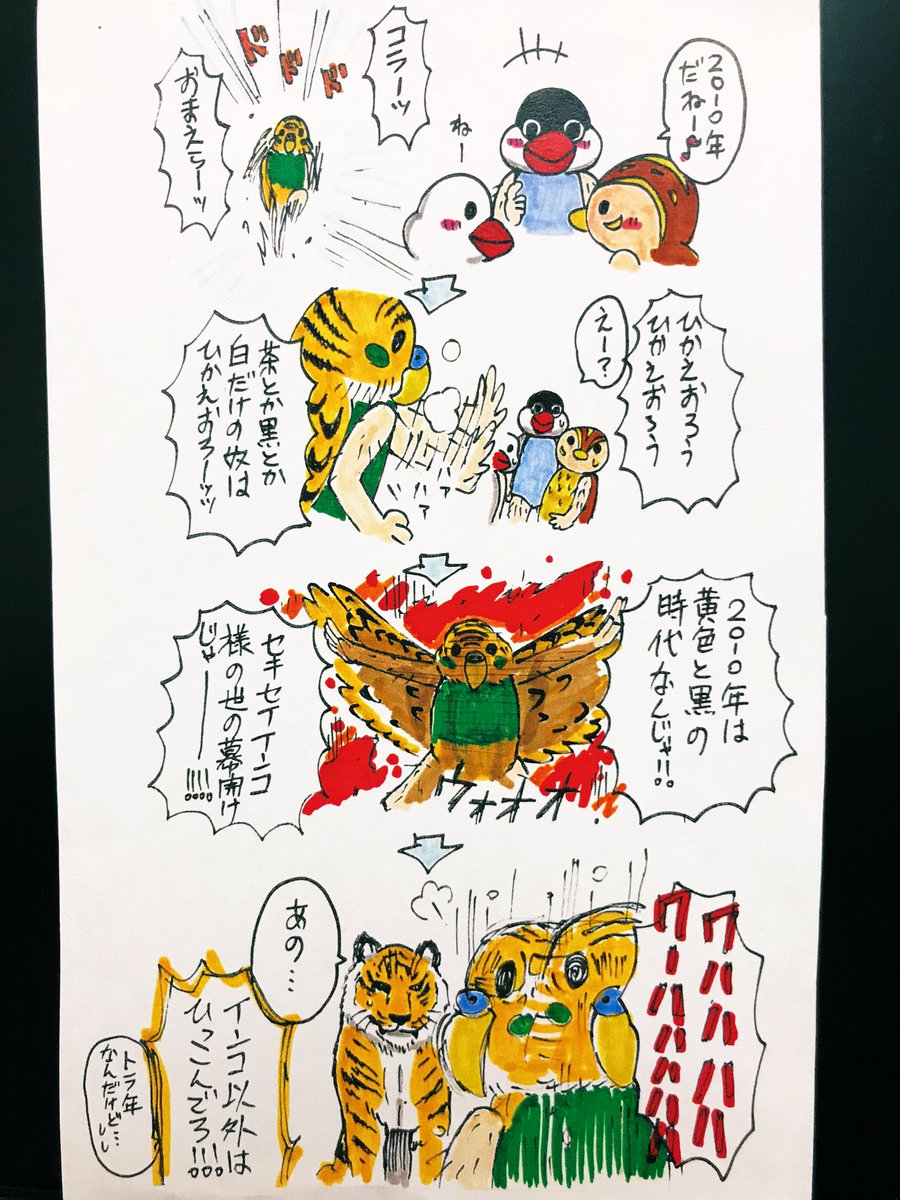 2010年
だねー♪
ねー
コラーッ
ドドド
おまえらーッ
ひかえおろう
ひかえおろう
えー？
茶とか黒とか
白だけの奴は
ひかえおろーッッ
2010年は
黄色と黒の
時代なんじゃ!!
セキセイインコ
様の世の幕開け
じゃーーー!!!!
ウォオオ
ワハハハハ
ワーハハハハ
あの…
インコ以外は
ひっこんでろ!!!!
トラ年
なんだけど…